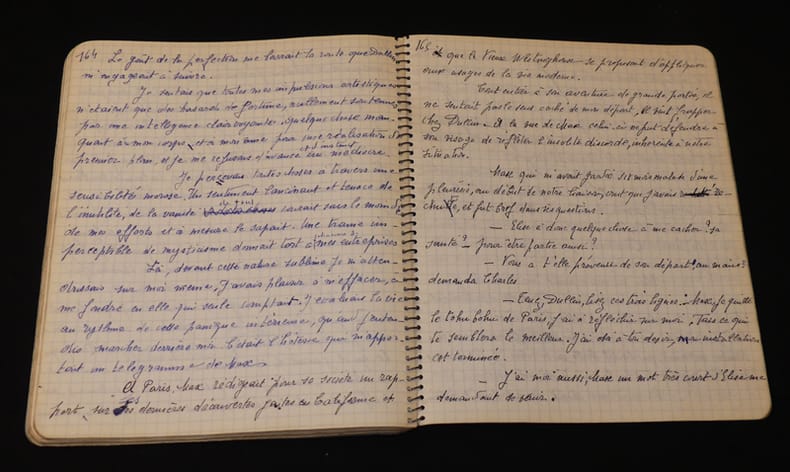 164 Le goût de la perfection me barrait la route que Dullin
m'engageait à suivre.
Je sentais que toutes mes impressions artistiques
n'étaient que des hasards de fortune, nullement soutenus
par une intelligence clairvoyante. Quelque chose man-
quait à mon corps et à mon âme pour une réalisation de
premier plan, et je me refusais d'avance au médiocre.
et d'instinct
Je percevais toutes choses à travers une
sensibilité morose. Un sentiment lancinant et tenace de
l'inutile, de la vanité de tout courait sous le monde
de mes efforts et à mesure le sapait. Une trame im-
perceptible de mysticisme donnait tort à mes entreprises
Là, devant cette nature sublime je m'atten-
drissais sur moi même, j'avais plaisir à m'effacer, à
me fondre en elle qui seule comptait. J'évaluais la vie
au rythme de cette panique intérieure, quand j'enten-
dis marcher derrière moi. C'était l'hôtesse qui m'appor-
tait un télégramme de Max
A Paris, Max rédigeait pour sa société un rap-
port sur les dernières découvertes faites en Californie et
165 que la Vieux Westinghouse se proposait d'appliquer
aux usages de la vie moderne.
Tout entier à son aventure de grande portée, il
ne sentait pas le sens caché de mon départ. Il vint frapper
chez Dullin. A la vue de Max celui-ci ne put défendre à
son visage de refléter l'insolite discorde, inhérente à notre
situation.
Max qui m'avait quittée si malade d'une
pleurésie, au début de notre liaison, crut que j'avais re-
chuté, et fut bref dans ses questions.
— Elise a donc quelque chose à me cacher? sa
santé? — pour être partie aussi?
— Vous a t'elle prévenu de son départ, au moins?
demanda Charles
— Tenez, Dullin, lisez ces trois lignes: Max, je quitte
le tohu bohu de Paris, j'ai à réfléchir sur moi. Fais ce qui
te semblera le meilleur. J'ai dû à toi desir, ma installation
est terminée.
— J'ai moi aussi, Max un mot très court d'Elise me
demandant